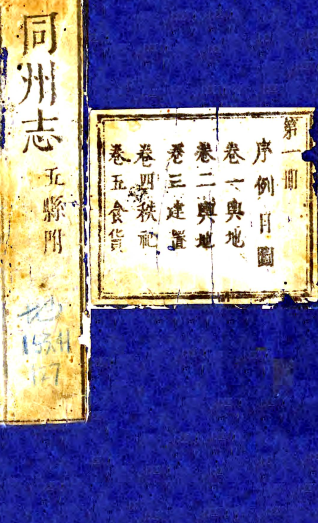 第一冊
序例目圖
卷一輿地
卷二輿地
卷三建置
卷四秩祀
卷五食貨
同州志
五縣附